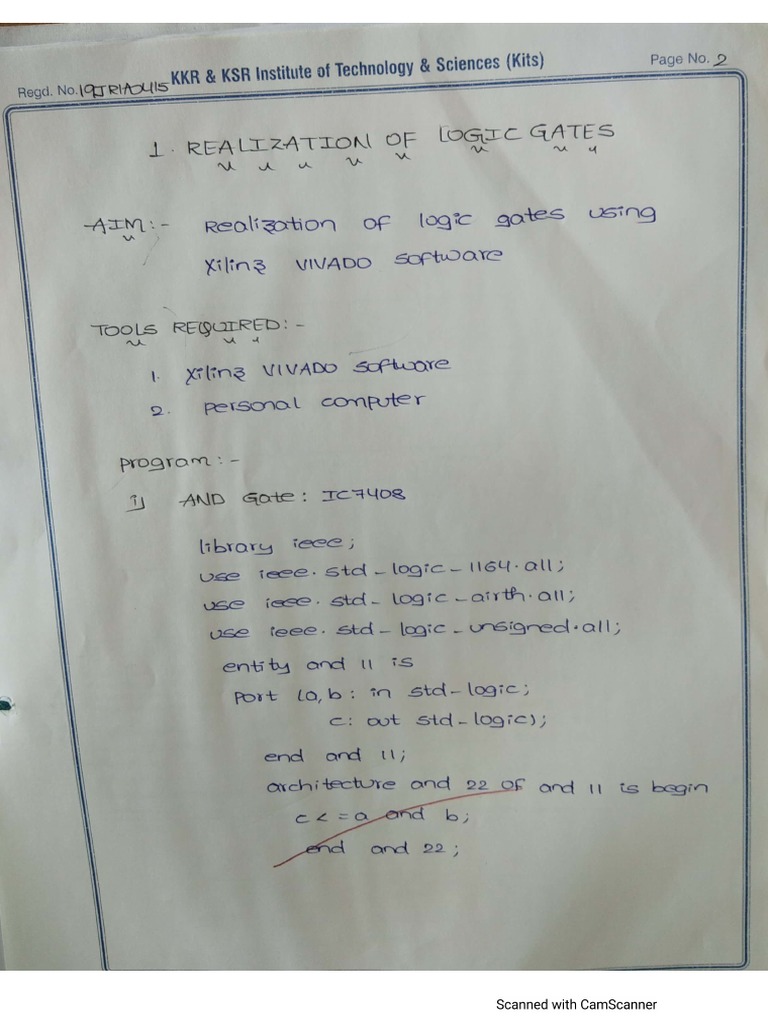 KKR & KSR Institute of Technology & Sciences (Kits)
Page No. 2
Regd. No. 19JR1A0415
1. REALIZATION OF LOGIC GATES
AIM:- Realization of logic gates using
Xilinz VIVADO software
TOOLS REQUIRED:-
1. Xilinz VIVADO software
2. personal computer
program:-
i) AND Gate: IC7408
library ieee;
use ieee.std-logic-1164.all;
use ieee.std-logic-airth.all;
use ieee.std-logic-unsigned.all;
entity and 11 is
Port (a,b: in std-logic;
c: out std-logic);
end and 11;
architecture and 22 of and 11 is begin
c<=a and b;
end and 22;
Scanned with CamScanner